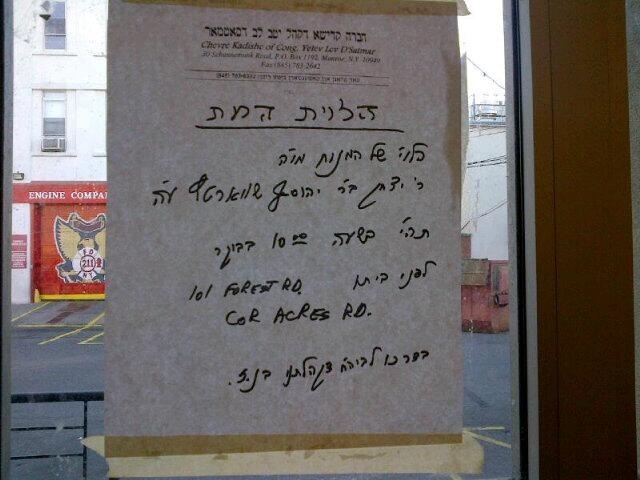 חברה קדישא דקהל יטב לב דסאטמאר
Chevre Kadishe of Cong. Yetev Lev D'Satmar
30 Schunnemunk Road, P.O. Box 1192, Monroe, N.Y. 10949
Fax (845) 783-2642
(845) 783-6332
הלוית המת
הלוי' של המנוח מו"ה
ר' יצחק ב"ר יהוסף שווארטץ ע"ה
תהי' בשעה 10:00 בבוקר
לפני ביתו 101 FOREST RD.
COR ACRES RD.
ENGINE COMPA
211